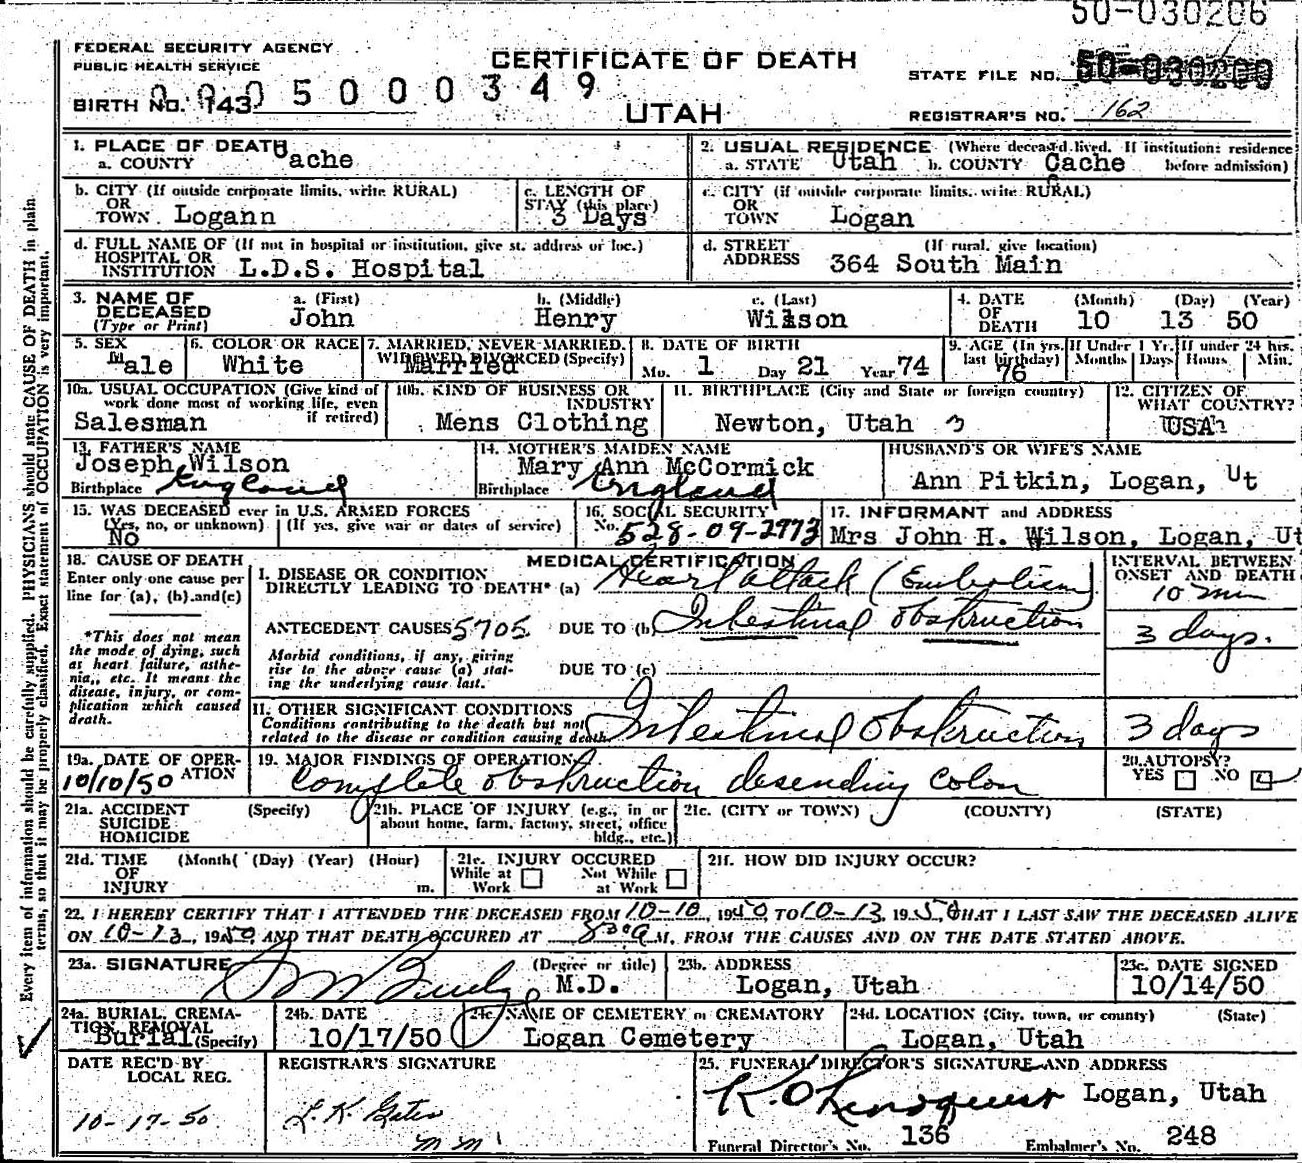 50-030206
FEDERAL SECURITY AGENCY
PUBLIC HEALTH SERVICE
CERTIFICATE OF DEATH
STATE FILE NO. 50-030200
BIRTH NO. 143 0005000349
UTAH
REGISTRAR'S NO. 162
1. PLACE OF DEATH
a. COUNTY Cache
2. USUAL RESIDENCE (Where deceased lived. If institution: residence before admission)
a. STATE Utah b. COUNTY Cache
b. CITY (If outside corporate limits, write RURAL)
OR
TOWN Logann
c. LENGTH OF
STAY (this place)
3 Days
c. CITY (if outside corporate limits, write RURAL)
OR
TOWN Logan
d. FULL NAME OF (If not in hospital or institution, give st. address or loc.)
HOSPITAL OR
INSTITUTION L.D.S. Hospital
d. STREET (If rural, give location)
ADDRESS 364 South Main
3. NAME OF
DECEASED
(Type or Print)
a. (First) John
b. (Middle) Henry
c. (Last) Wilson
4. DATE
OF
DEATH
(Month) (Day) (Year)
10 13 50
5. SEX
Male
6. COLOR OR RACE
White
7. MARRIED, NEVER MARRIED,
WIDOWED, DIVORCED (Specify)
Married
8. DATE OF BIRTH
Mo. 1 Day 21 Year 74
9. AGE (In yrs. last birthday)
76
If Under 1 Yr. Months Days
If under 24 hrs. Hours Min.
10a. USUAL OCCUPATION (Give kind of
work done most of working life, even
if retired)
Salesman
10b. KIND OF BUSINESS OR
INDUSTRY
Mens Clothing
11. BIRTHPLACE (City and State or foreign country)
Newton, Utah
12. CITIZEN OF
WHAT COUNTRY?
USA
13. FATHER'S NAME
Joseph Wilson
Birthplace England
14. MOTHER'S MAIDEN NAME
Mary Ann McCormick
Birthplace England
HUSBAND'S OR WIFE'S NAME
Ann Pitkin, Logan, Ut
15. WAS DECEASED ever in U.S. ARMED FORCES
(Yes, no, or unknown) (If yes, give war or dates of service)
No
16. SOCIAL SECURITY
No. 528-09-2973
17. INFORMANT and ADDRESS
Mrs John H. Wilson, Logan, Ut
18. CAUSE OF DEATH
Enter only one cause per
line for (a), (b), and (c)
*This does not mean
the mode of dying, such
as heart failure, asthe-
nia, etc. It means the
disease, injury, or com-
plication which caused
death.
MEDICAL CERTIFICATION
I. DISEASE OR CONDITION
DIRECTLY LEADING TO DEATH* (a) Heart attack (Embolism)
ANTECEDENT CAUSES 5705 DUE TO (b) Intestinal obstruction
Morbid conditions, if any, giving
rise to the above cause (a) stat-
ing the underlying cause last.
DUE TO (c)
INTERVAL BETWEEN
ONSET AND DEATH
10 min
3 days.
II. OTHER SIGNIFICANT CONDITIONS
Conditions contributing to the death but not
related to the disease or condition causing death.
Intestinal obstruction
3 days
19a. DATE OF OPER-
ATION
10/10/50
19. MAJOR FINDINGS OF OPERATION
Complete obstruction desending colon
20. AUTOPSY?
YES NO
21a. ACCIDENT (Specify)
SUICIDE
HOMICIDE
21b. PLACE OF INJURY (e.g., in or
about home, farm, factory, street, office
bldg., etc.)
21c. (CITY or TOWN) (COUNTY) (STATE)
21d. TIME (Month) (Day) (Year) (Hour)
OF
INJURY m.
21e. INJURY OCCURED
While at Work Not While at Work
21f. HOW DID INJURY OCCUR?
22. I HEREBY CERTIFY THAT I ATTENDED THE DECEASED FROM 10-10, 1950 TO 10-13, 1950 THAT I LAST SAW THE DECEASED ALIVE
ON 10-13, 1950, AND THAT DEATH OCCURED AT 830a M. FROM THE CAUSES AND ON THE DATE STATED ABOVE.
23a. SIGNATURE (Degree or title)
M.D.
23b. ADDRESS
Logan, Utah
23c. DATE SIGNED
10/14/50
24a. BURIAL, CREMA-
TION, REMOVAL
(Specify) Burial
24b. DATE
10/17/50
24c. NAME OF CEMETERY or CREMATORY
Logan Cemetery
24d. LOCATION (City, town, or county) (State)
Logan, Utah
DATE REC'D BY
LOCAL REG.
10-17-50
REGISTRAR'S SIGNATURE
25. FUNERAL DIRECTOR'S SIGNATURE AND ADDRESS
Logan, Utah
Funeral Director's No. 136 Embalmer's No. 248
Every item of information should be carefully supplied. PHYSICIANS should state CAUSE OF DEATH in plain
terms, so that it may be properly classified. Exact statement of OCCUPATION is very important.